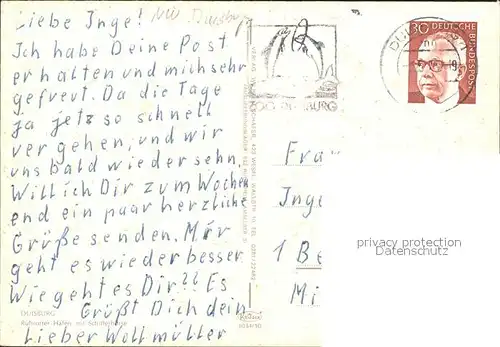 Liebe Inge! NW Duisburg
Ich habe Deine Post
erhalten und mich sehr
gefreut. Da die Tage
ja jetz so schnell
vergehen, und wir
uns bald wieder sehn.
Will ich Dir zum Wochen
end ein paar herzliche
Grüße senden. Mir
geht es wieder besser
Wie geht es Dir?? Es
Grüßt Dich dein
Lieber Wollmüller
DUISBURG
Ruhrorter Hafen mit Schifferbörse
ZOO DUISBURG
DUISBURG
30
DEUTSCHE BUNDESPOST
Frau
Inge
1 Be
Mi
privacy protection
Datenschutz